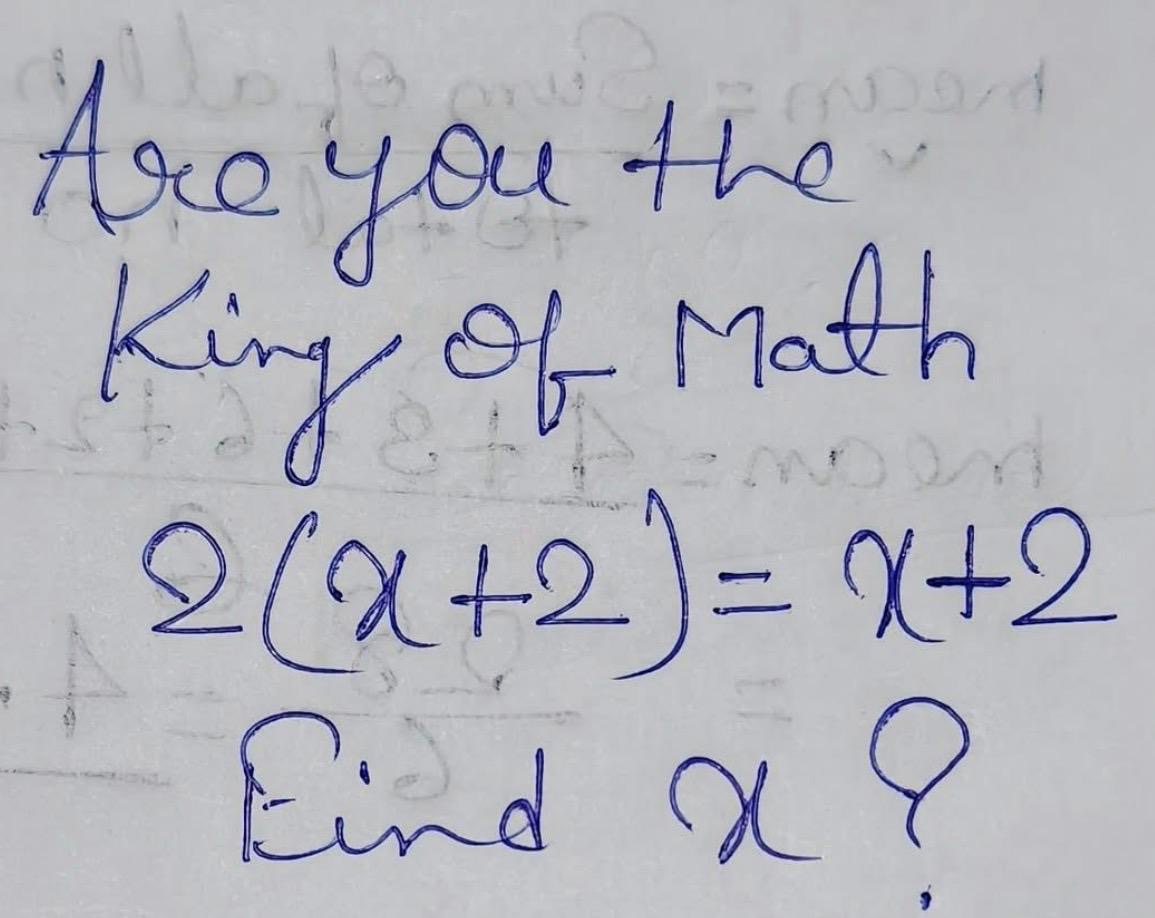 Are you the
King Of Math
2(x+2)= x+2
Find x?